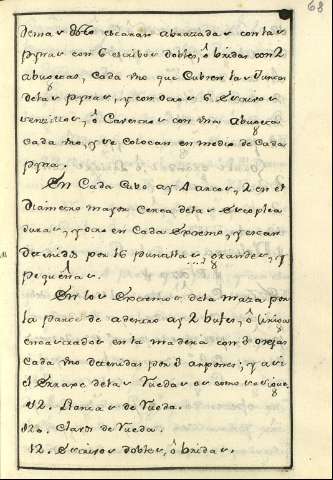 68
demas dho estaran abrazadas con las
pynas con 6 estribos dobles, ô bridas con 2
abugeras, Cada uno que Cubren las Juntas
delas pynas, y con otros 6 Estrivos
sensillos, ô Cavestros con una abugera
cada uno, y se colocan en medio de cada
pyna.
En Cada Cubo ay 4 arcos, 2 en el
Diametro mayor Cerca delas Escoplea
duras, y otro en Cada Extremo, y estan
detenidos por 16 puntillas, grandes, y
pequeñas.
En los Extremos dela maza por
la parte de adentro ay 2 bujes, ô
encaxados en la madera con 3 orejas
cada uno detenidas por 3 arpones; y assi
el Errage delas Ruedas es como se sigue
12. Llantas de Rueda.
120. Clavos de Rueda.
12. Estrivos dobles, ô bridas.